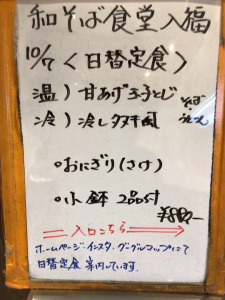 和そば食堂入福
10/7 <日替定食>
温) 甘あげ玉子とじ そば
冷) 冷しタヌキ風 うどん
○おにぎり(さけ)
○小鉢 2品付
¥880-
入口こちら
ホームページ・インスタ、グーグルマップにて
日替定食 案内しています。